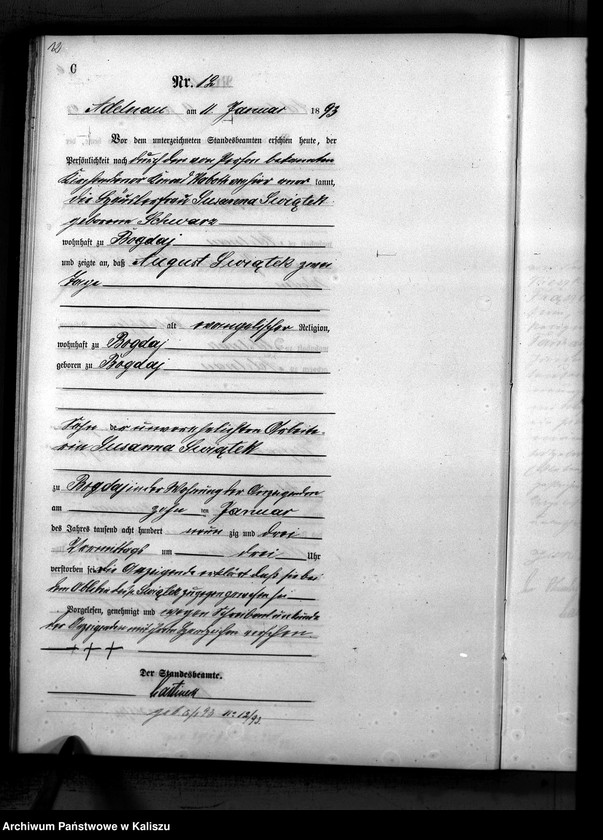 C
Nr. 12
Adelnau am 11. Januar 1893
Vor dem unterzeichneten Standesbeamten erschien heute, der
Persönlichkeit nach durch den von Person bekannten
Kirchendiener kannt,
die Häuslerfrau Susanna Swiątek
geborene Schwarz
wohnhaft zu Bogdaj
und zeigte an, daß August Swiątek zwei
Tage
alt evangelischer Religion,
wohnhaft zu Bogdaj
geboren zu Bogdaj
Sohn der unverehelichten Arbeite-
rin Susanna Swiątek
zu Bogdaj in der Wohnung der Anzeigenden
am zehn ten Januar
des Jahres tausend acht hundert neun zig und drei
Vormittags um drei Uhr
verstorben sei, die Anzeigende erklärt daß sie bei
dem Ableben des Swiątek zugegen gewesen sei
Vorgelesen, genehmigt und wegen Schreibensunkunde
der Anzeigenden mit ihrem Handzeichen versehen
+ + +
Der Standesbeamte.
Archiwum Państwowe w Kaliszu